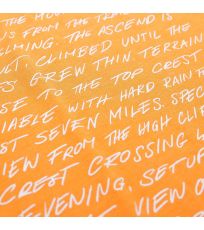 US FROM THE TRA
ELMING. THE ASCEND IS
CLIMBED UNTIL THE
S GREW THIN. TERRAIN
SE TO THE TOP CREST
IABLE WITH HARD RAIN
ST SEVEN MILES. SPEC
IEW FROM THE HIGH CLI
CREST CROSSING
EVENING. SETU
VIEW O